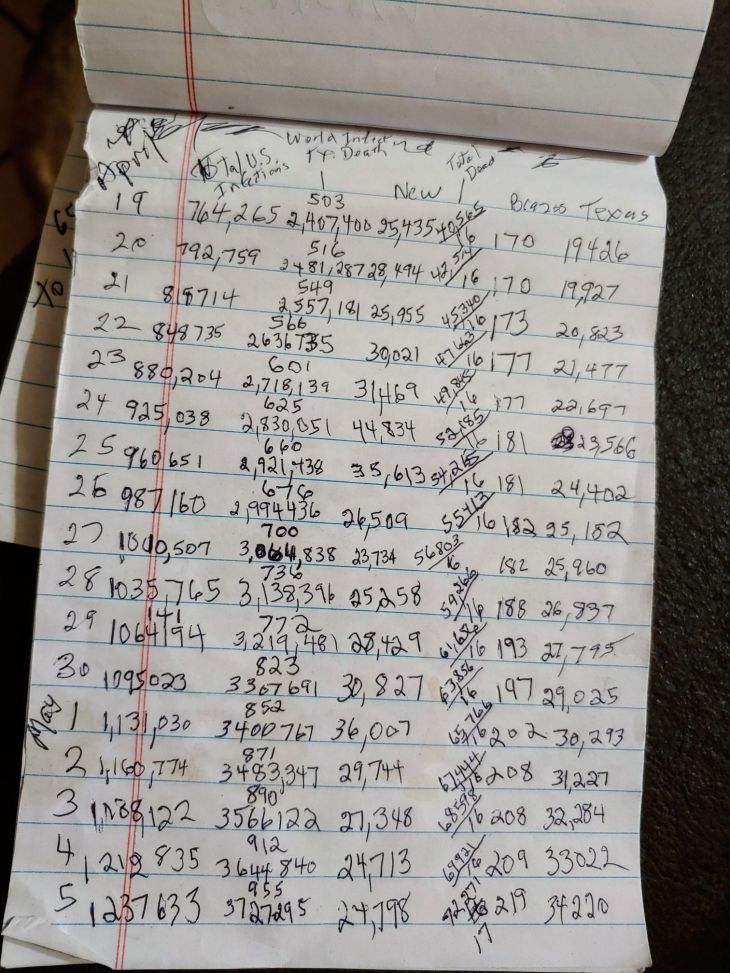 April
Total U.S. Infections
World Infect
TX. Death
New
Total Dead
Brazos Texas
503
19 764,265 2,407,400 25,435 40,565/16 170 19426
516
20 792,759 2481,287 28,494 42,514/16 170 19,927
549
21 818714 2,557,181 25,955 45340/16 173 20,823
566
22 848735 2636735 30,021 47,663/16 177 21,477
601
23 880,204 2,718,139 31,469 49,845/16 177 22,697
625
24 925,038 2,830,051 44,834 52,185/16 181 23,566
660
25 960651 2,921,438 35,613 54,265/16 181 24,402
676
26 987160 2,994436 26,509 55413/16 182 25,182
700
27 1,010,507 3,064,838 23,734 56803/16 182 25,960
736
28 1035,765 3,138,396 25,258 59,266/16 188 26,837
141 772
29 1064194 3,219,481 28,429 61,680/16 193 27,795
823
30 1095023 3307691 30,827 63,856/16 197 29,025
852
May 1 1,131,030 3400767 36,007 65,766/16 202 30,293
871
2 1,160,774 3483,347 29,744 67,444/16 208 31,227
890
3 1,188,122 3566122 27,348 68598/16 208 32,284
912
4 1,212 835 3644 840 24,713 69921/16 209 33022
955
5 1237633 3727295 24,798 72,271 219 34220
17